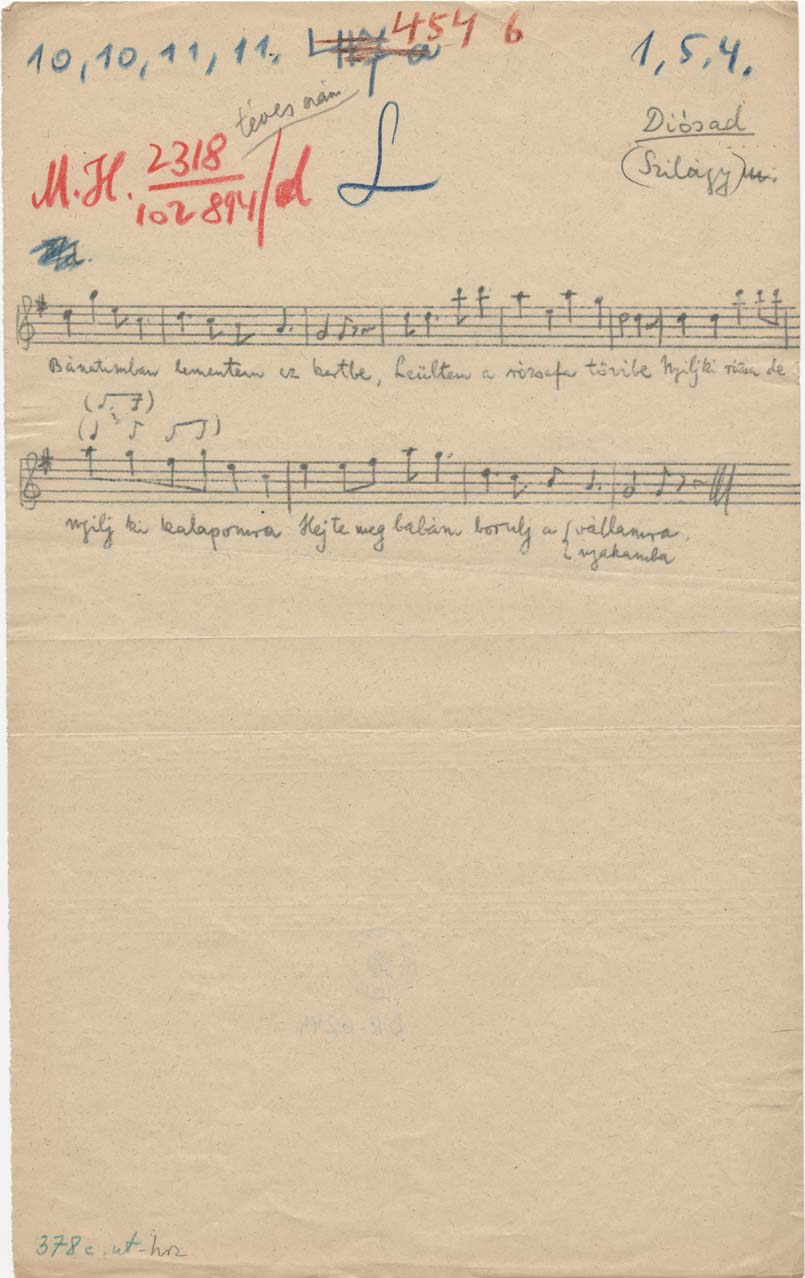 10, 10, 11, 11. 454 b 1, 5, 4.
téves szám
Diósad
(Szilágy) m.
M.H. 2318
102894/d L
Bánatimban lementem az kertbe, Leültem a rózsafa tövibe Nyilj ki rózsa de
nyilj ki kalapomra Hejte meg babám borulj a { vállamra.
nyakamba
378 c. ut-hoz